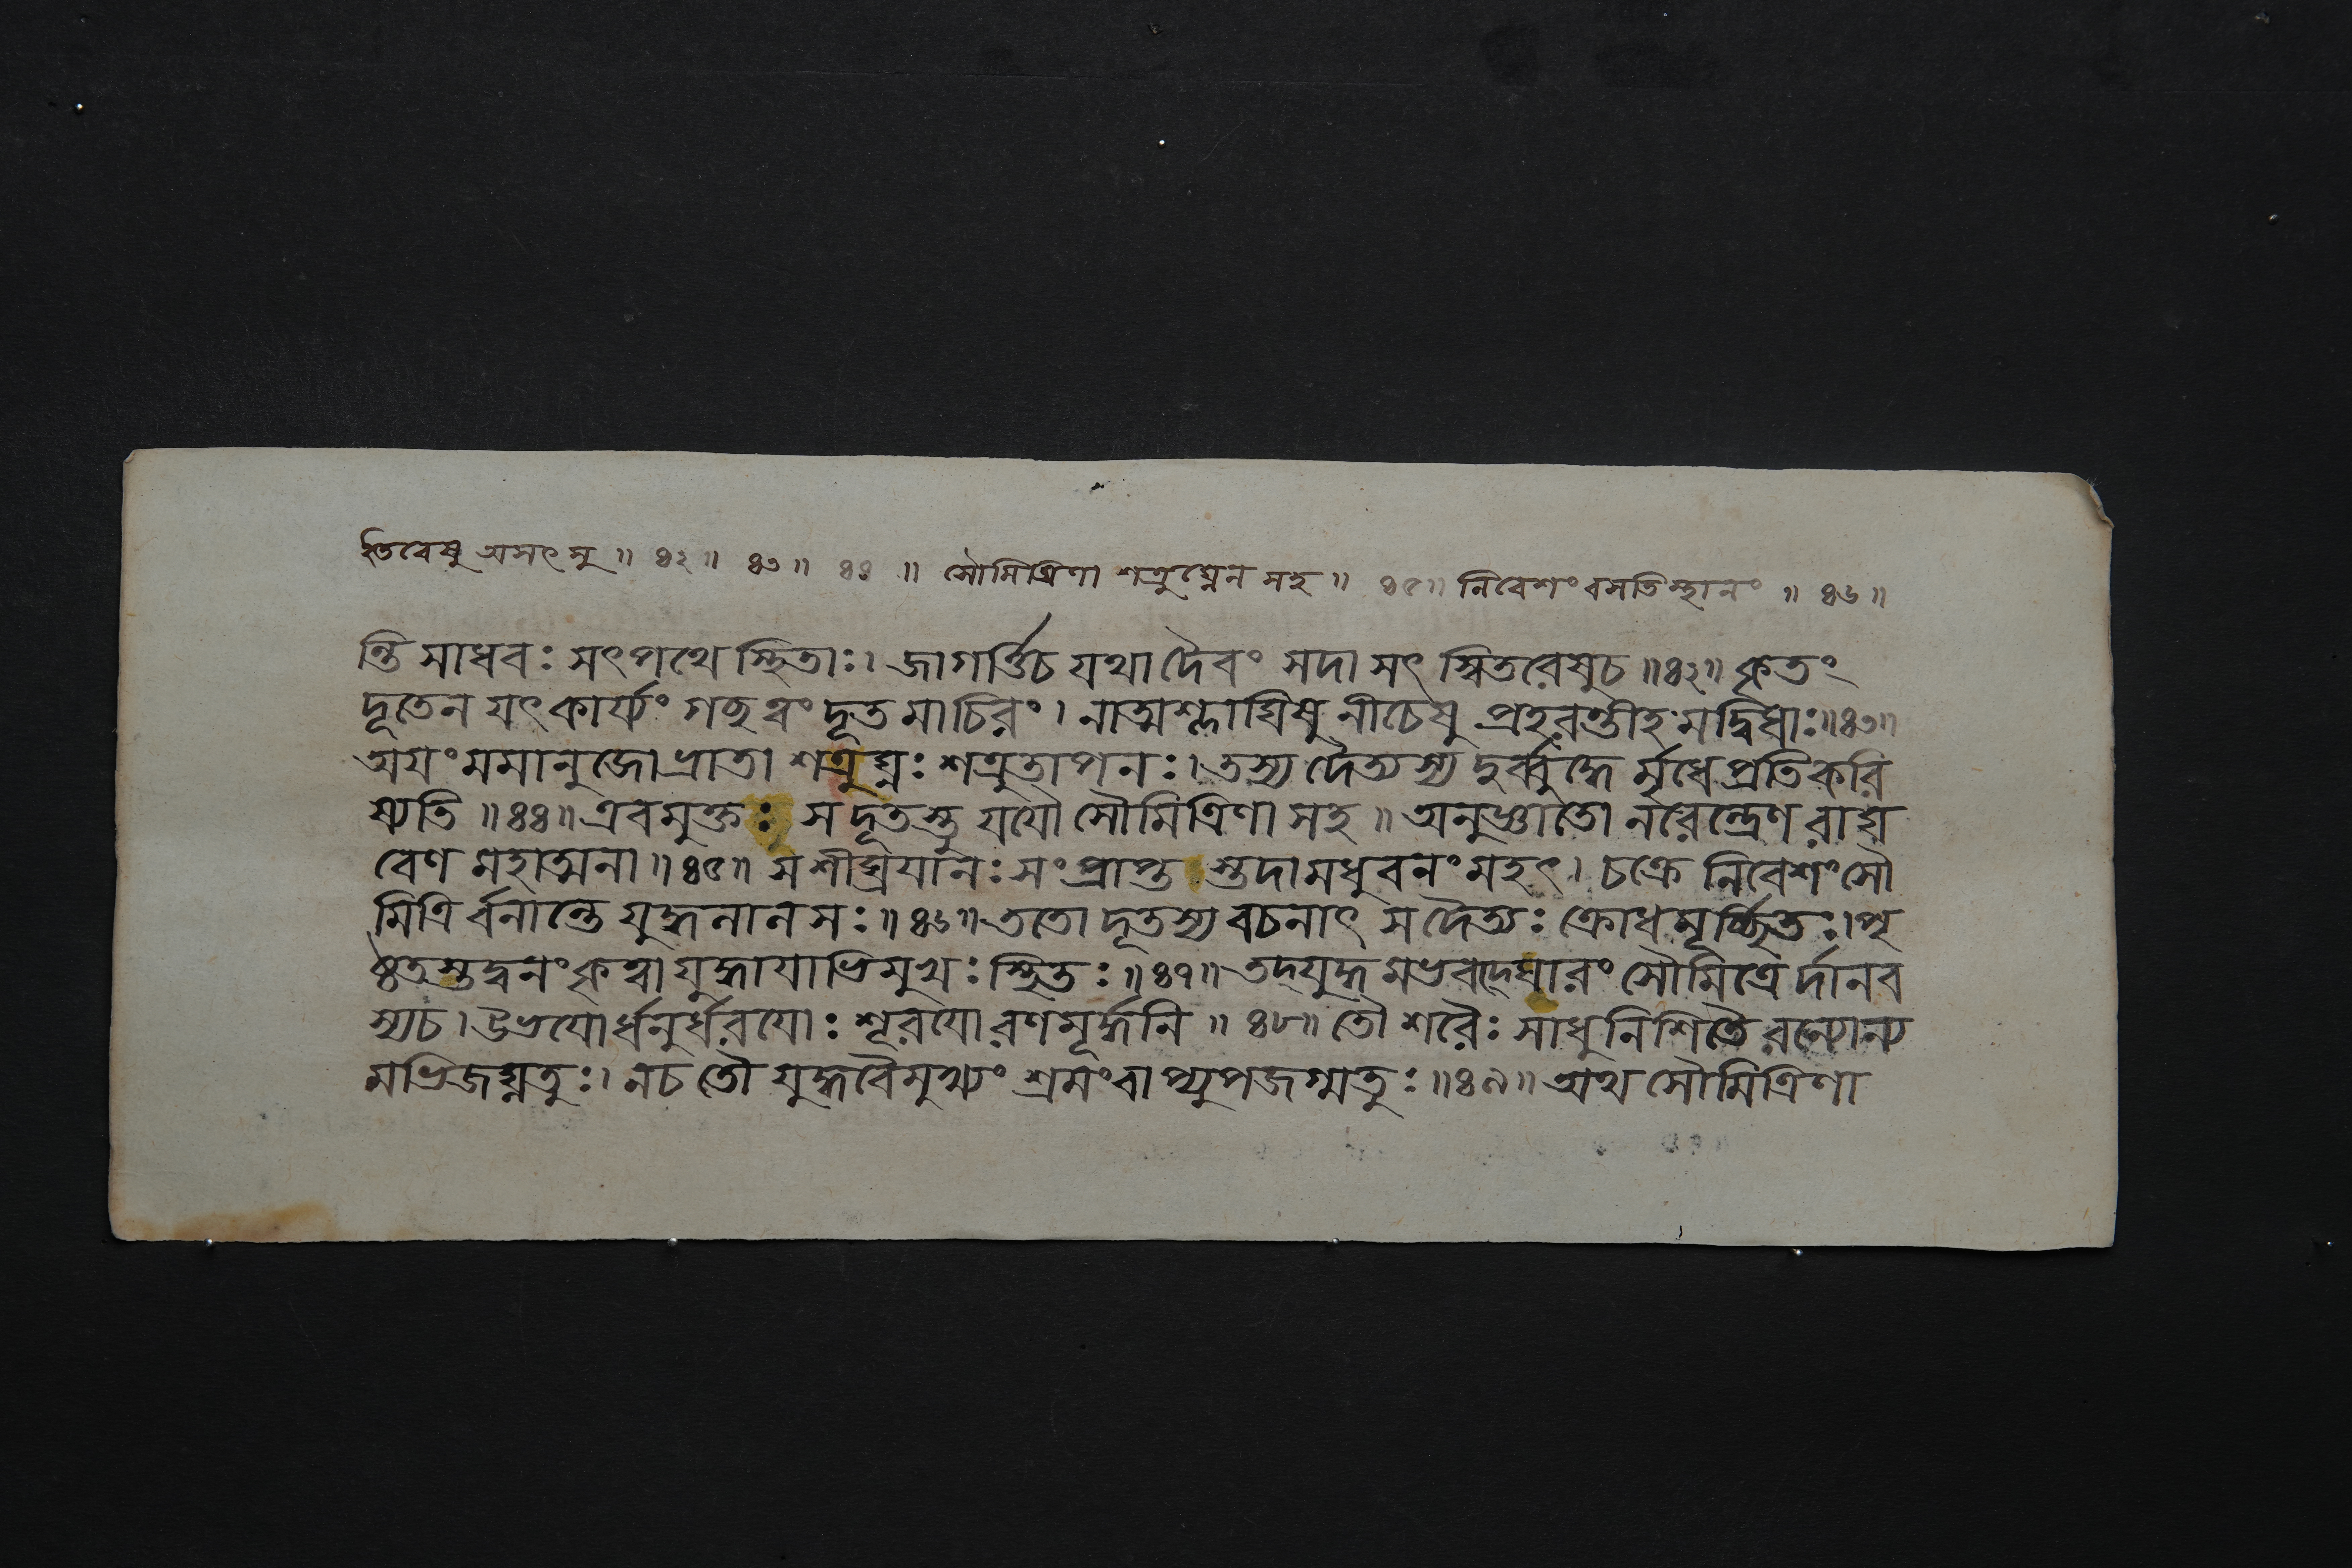 ইতিবেষু অসৎসু ॥ ৪২ ॥ ৪৩ ॥ ৪৪ ॥ সৌমিত্রিণা শত্রুঘ্নেন সহ ॥ ৪৫ ॥ নিবেশং বসতিস্থানং ॥ ৪৬ ॥
ন্তি সাধবঃ সৎপথে স্থিতাঃ। জাগর্ত্তিচ যথা দৈবং সদা সৎ স্বিতরেষুচ ॥৪২॥ কৃতং
দূতেন যৎ কার্য্যং গচ্ছ ত্বং দূত মাচিরং। নাত্মশ্লাঘিষু নীচেষু প্রহরন্তীহ মদ্বিধাঃ॥৪৩॥
অয়ং মমানুজো ভ্রাতা শত্রুঘ্নঃ শত্রুতাপনঃ। তস্য দৈত্যস্য দুর্ব্বুদ্ধে র্মৃধে প্রতিকরি
ষ্যতি ॥৪৪॥ এবমুক্তঃ স দূতস্তু যযৌ সৌমিত্রিণা সহ ॥ অনুজ্ঞাতো নরেন্দ্রেণ রাঘ
বেণ মহাত্মনা ॥৪৫॥ স শীঘ্রযানঃ সংপ্রাপ্ত স্তদা মধুবনং মহৎ। চক্রে নিবেশং সৌ
মিত্রি র্বনান্তে যুদ্ধনানসঃ॥৪৬॥ ততো দূতস্য বচনাৎ স দৈত্যঃ ক্রোধমূর্চ্ছিতঃ। পৃ
ষ্ঠতস্তদ্বনং কৃত্বা যুদ্ধায়াভিমুখঃ স্থিতঃ॥৪৭॥ তদ্যুদ্ধমভবদ্ঘোরং সৌমিত্রে র্দানব
স্যচ। উভয়ো র্ধনুর্ধরয়োঃ শূরয়ো রণমূর্দ্ধনি ॥ ৪৮॥ তৌ শরৈঃ সাধুনিশিতৈ রন্যোন্য
মভিজঘ্নতুঃ। নচ তৌ যুদ্ধবৈমুখ্যং শ্রমং বাপ্যুপজগ্মতুঃ॥৪৯॥ অথ সৌমিত্রিণা